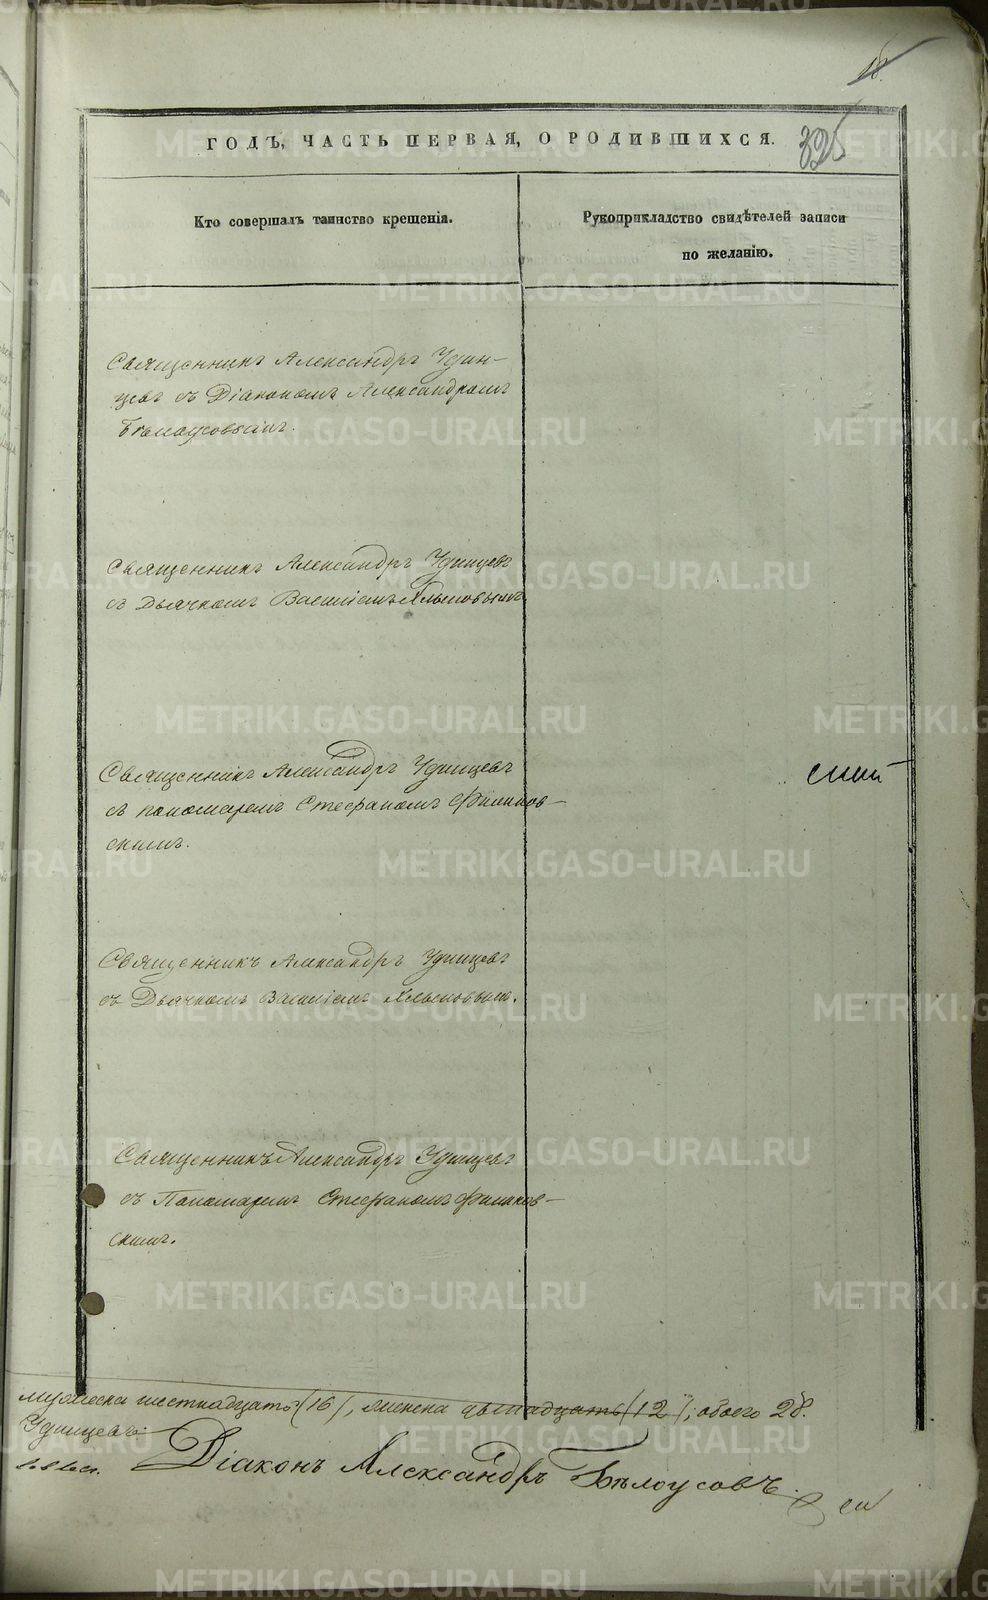 18.
325
ГОДЪ, ЧАСТЬ ПЕРВАЯ, О РОДИВШИХСЯ.
Кто совершалъ таинство крещенія.
Рукоприкладство свидѣтелей записи
по желанію.
Священникъ Александръ Удин-
цевъ съ Діакономъ Александромъ
Бѣлоусовымъ.
Священникъ Александръ Удинцевъ
съ Дьячкомъ Василіемъ
Священникъ Александръ Удинцевъ
съ пономаремъ Стефаномъ
скимъ.
Священникъ Александръ Удинцевъ
съ Дьячкомъ Василіемъ
Священникъ Александръ Удинцевъ
съ Пономаремъ Стефаномъ
скимъ.
мужеска шестнадцать (16), женска двенадцать (12), обоего 28.
Удинцевъ.
Діаконъ Александръ Бѣлоусовъ.
METRIKI.GASO-URAL.RU